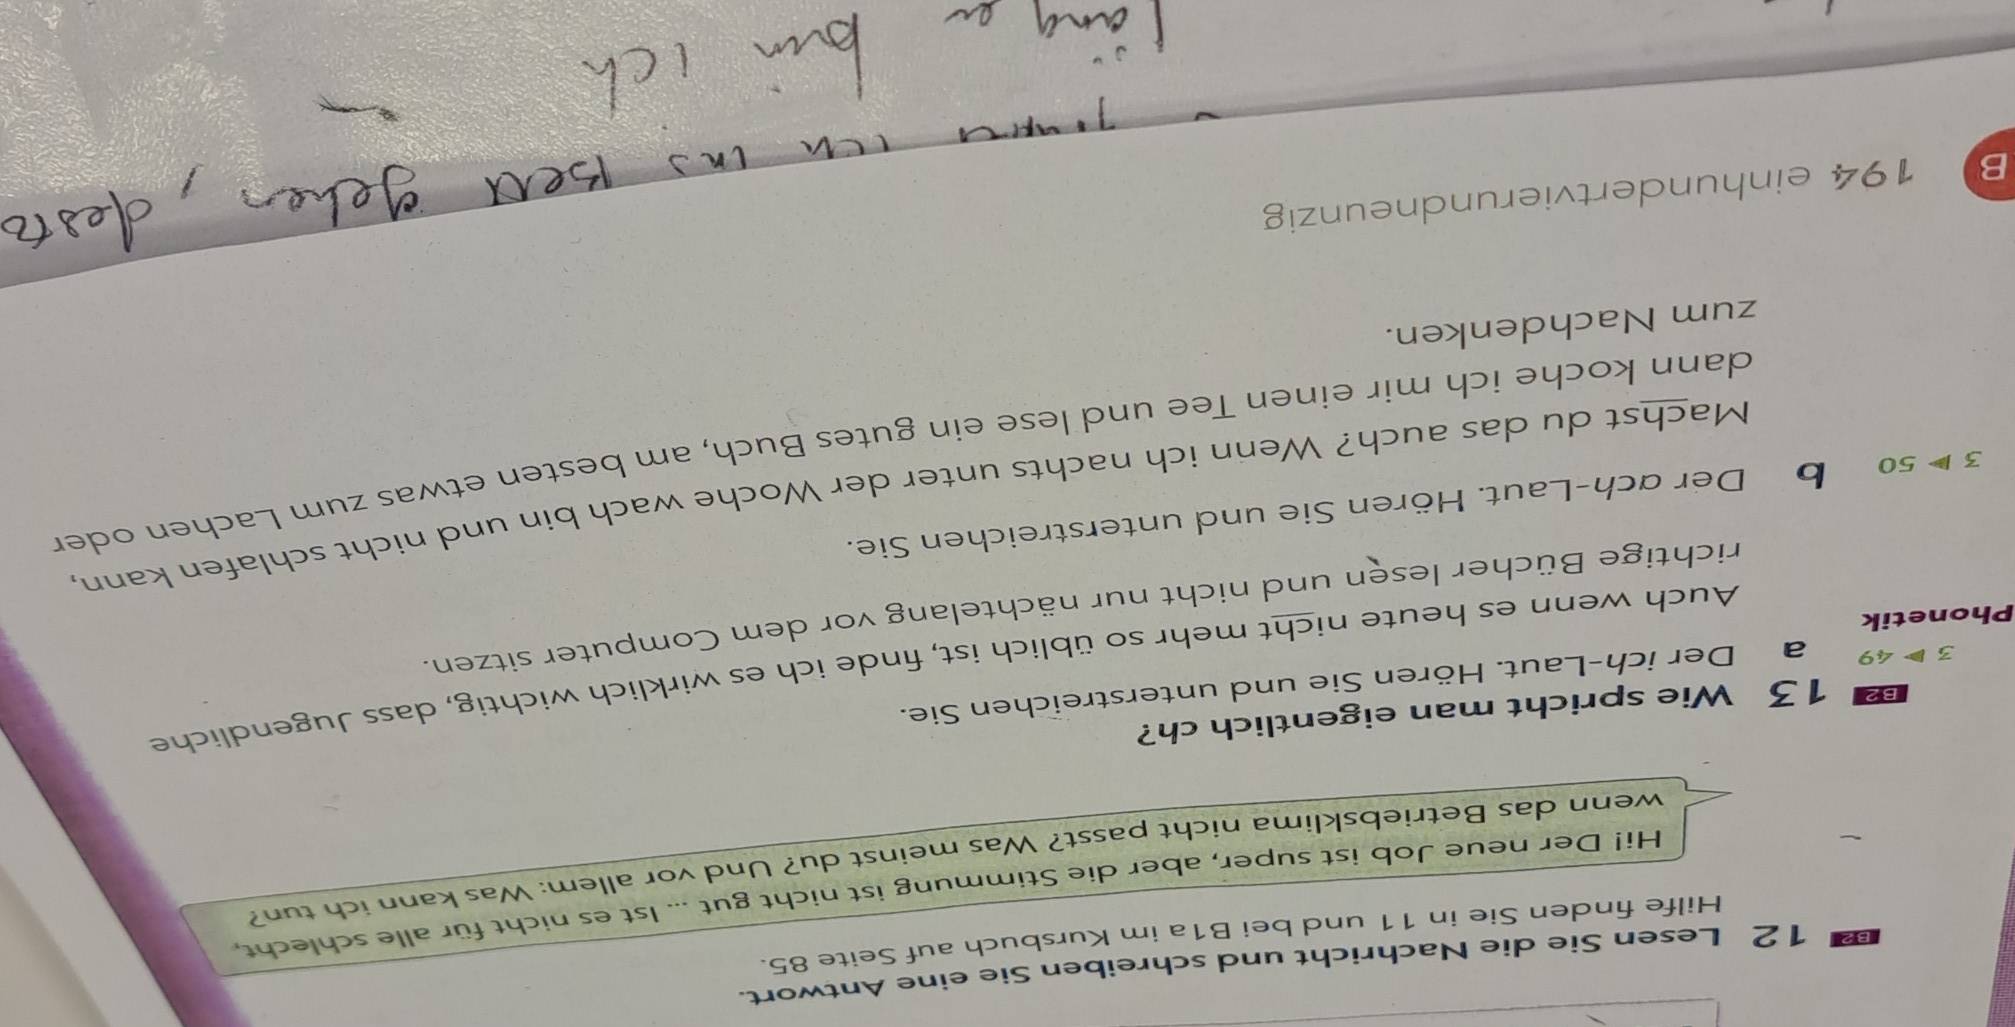 B2 12 Lesen Sie die Nachricht und schreiben Sie eine Antwort.
Hilfe finden Sie in 11 und bei B1a im Kursbuch auf Seite 85.
Hi! Der neue Job ist super, aber die Stimmung ist nicht gut ... Ist es nicht für alle schlecht,
wenn das Betriebsklima nicht passt? Was meinst du? Und vor allem: Was kann ich tun?
B2 13 Wie spricht man eigentlich ch?
3 ▶ 49 a Der ich-Laut. Hören Sie und unterstreichen Sie.
Phonetik
Auch wenn es heute nicht mehr so üblich ist, finde ich es wirklich wichtig, dass Jugendliche
richtige Bücher lesen und nicht nur nächtelang vor dem Computer sitzen.
3 ▶ 50 b Der ach-Laut. Hören Sie und unterstreichen Sie.
Machst du das auch? Wenn ich nachts unter der Woche wach bin und nicht schlafen kann,
dann koche ich mir einen Tee und lese ein gutes Buch, am besten etwas zum Lachen oder
zum Nachdenken.
B 194 einhundertvierundneunzig
ich ins Bett gehen, desto
länger bin ich